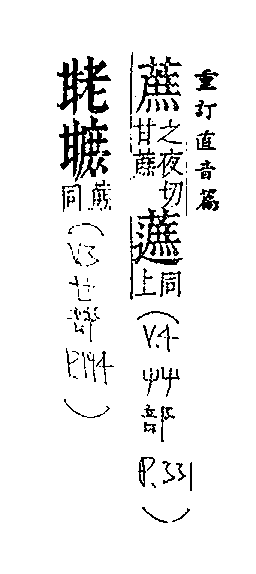 重訂直音篇
蔗
之夜切
甘蔗
同上
(V.4 艸部 P.331)
蔗同
(V.3 甘部 P.194)